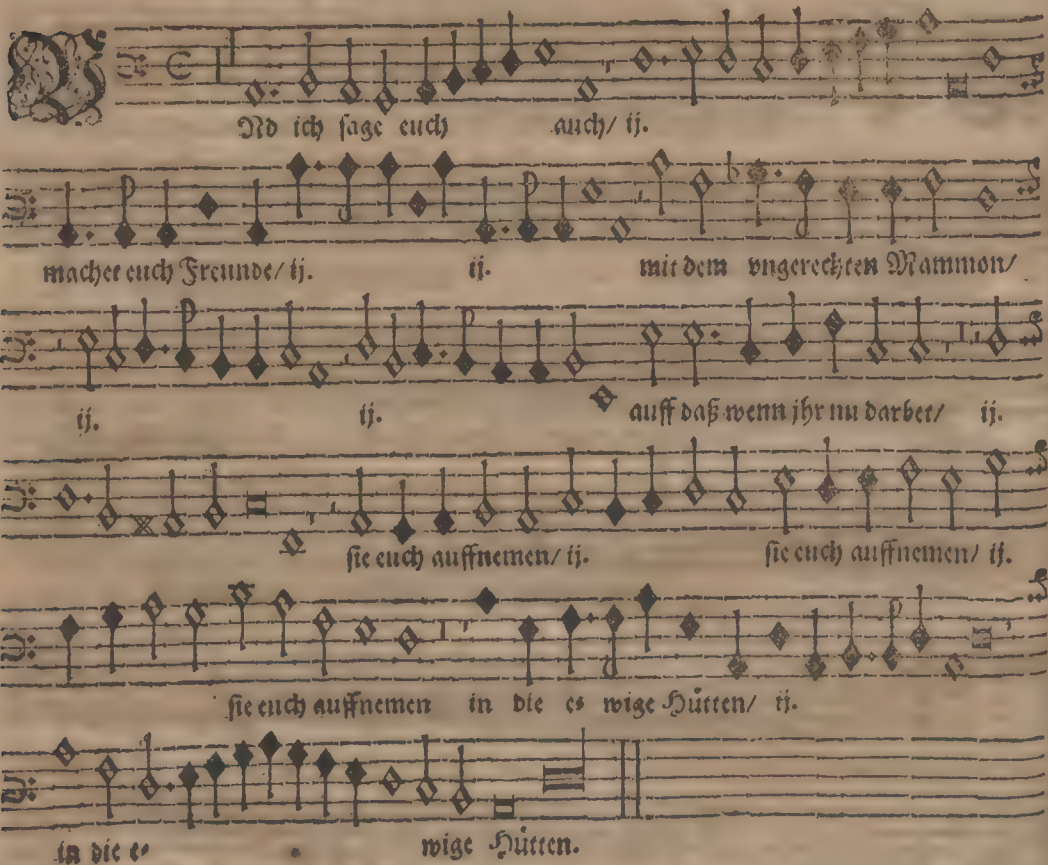 VNd ich sage euch auch/ ij.
machet euch Freunde/ ij. ij. mit dem vngerechten Mammon/
ij. ij. auff daß wenn jhr nu darbet/ ij.
sie euch auffnemen/ ij. sie euch auffnemen/ ij.
sie euch auffnemen in die e⸗ wige Hütten/ ij.
in die e⸗ wige Hütten.